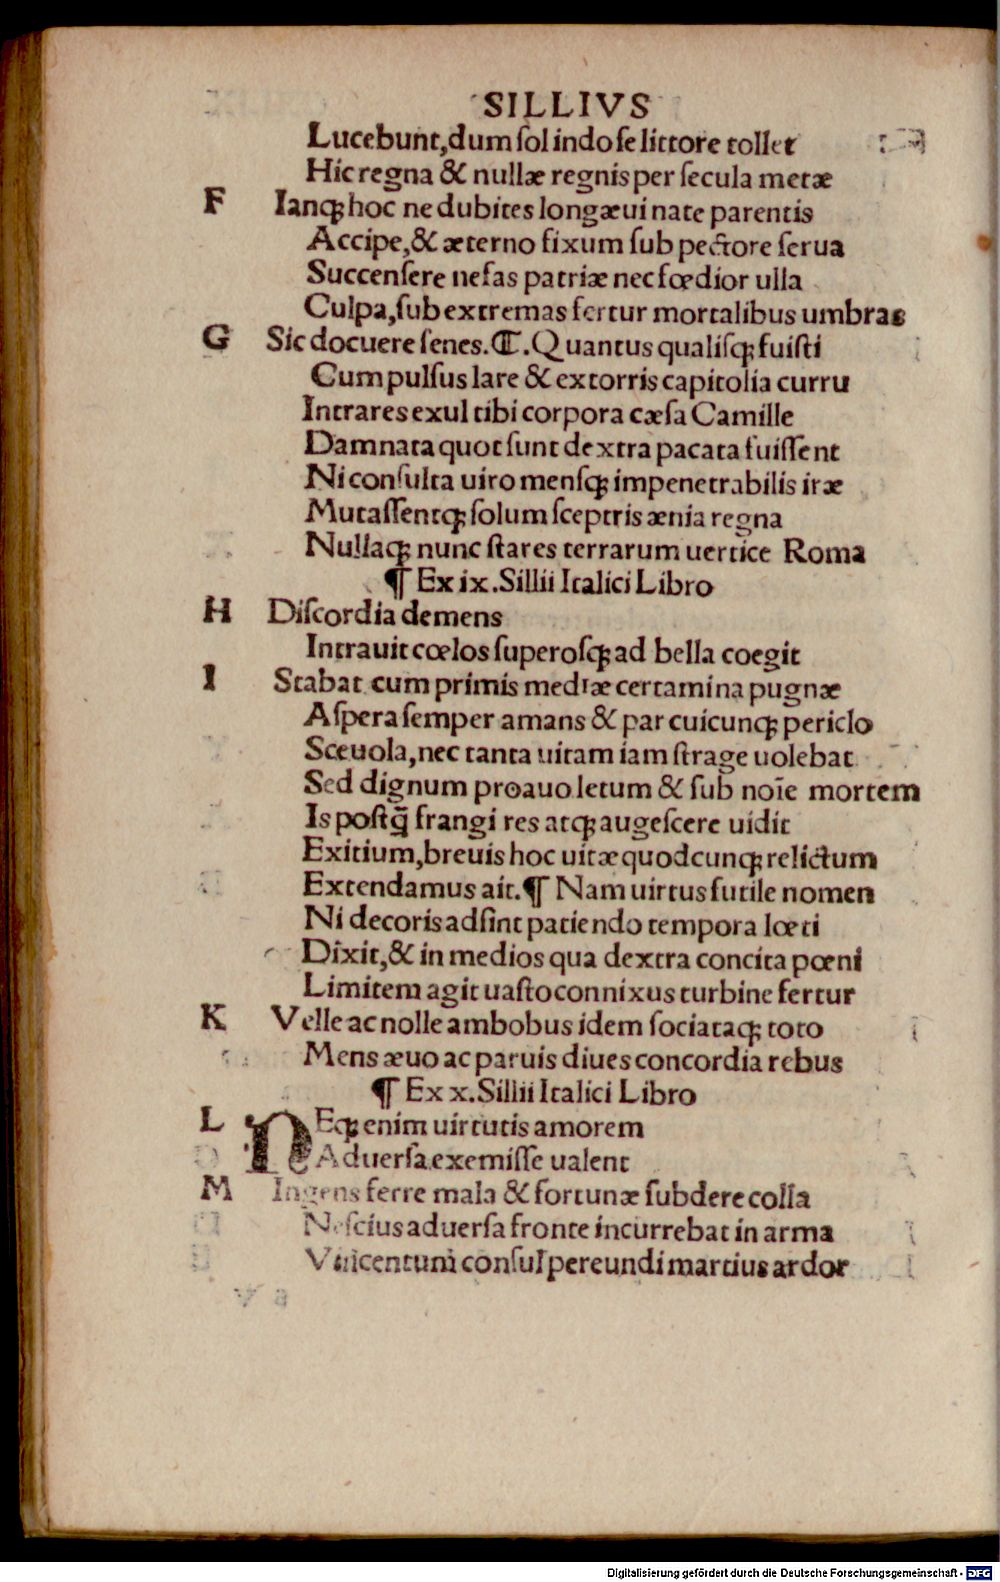 SILLIVS
Lucebunt,dum ſol indo ſe littore tollet
Hic regna & nullæ regnis per ſecula metæ
F Ianqꝫ hoc ne dubites longæui nate parentis
Accipe,& æterno fixum ſub pectore ſerua
Succenſere nefas patriæ nec fœdior ulla
Culpa,ſub extremas fertur mortalibus umbras
G Sic docuere ſenes.₵.Quantus qualiſqꝫ fuiſti
Cum pulſus lare & extorris capitolia curru
Intrares exul tibi corpora cæſa Camille
Damnata quot ſunt dextra pacata fuiſſent
Ni conſulta uiro menſqꝫ impenetrabilis iræ
Mutaſſentqꝫ ſolum ſceptris ænia regna
Nullaqꝫ nunc ſtares terrarum uertice Roma
¶ Ex ix.Sillii Italici Libro
H Diſcordia demens
Intrauit cœlos ſuperoſqꝫ ad bella coegit
I Stabat cum primis mediæ certamina pugnæ
Aſpera ſemper amans & par cuicunqꝫ periclo
Sceuola,nec tanta uitam iam ſtrage uolebat
Sed dignum proauo letum & ſub noīe mortem
Is poſtq̄ frangi res atqꝫ augeſcere uidit
Exitium,breuis hoc uitæ quodcunqꝫ relictum
Extendamus ait.¶ Nam uirtus futile nomen
Ni decoris adſint patiendo tempora lœti
Dixit,& in medios qua dextra concita pœni
Limitem agit uaſto connixus turbine fertur
K Velle ac nolle ambobus idem ſociataqꝫ toto
Mens æuo ac paruis diues concordia rebus
¶ Ex x.Sillii Italici Libro
L NEqꝫ enim uirtutis amorem
Aduerſa exemiſſe ualent
M Ingens ferre mala & fortunæ ſubdere colla
Neſcius aduerſa fronte incurrebat in arma
Vincentum conſul pereundi martius ardor
Digitalisierung gefördert durch die Deutsche Forschungsgemeinschaft - DFG